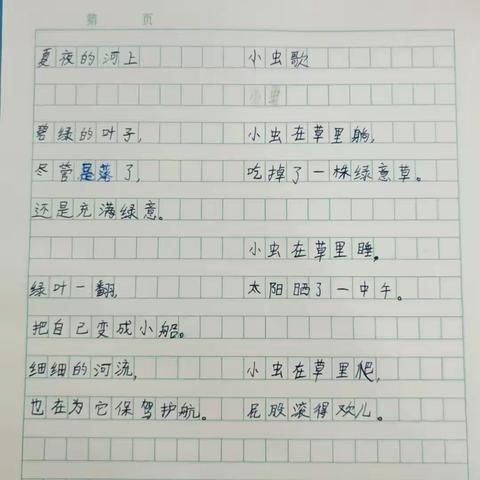 第 页
夏夜的河上
碧绿的叶子，
尽管是落了，
还是充满绿意。
绿叶一翻，
把自己变成小船。
细细的河流，
也在为它保驾护航。
小虫歌
小虫
小虫在草里躺，
吃掉了一株绿意草。
小虫在草里睡，
太阳晒了一中午。
小虫在草里爬，
屁股滚得欢儿。